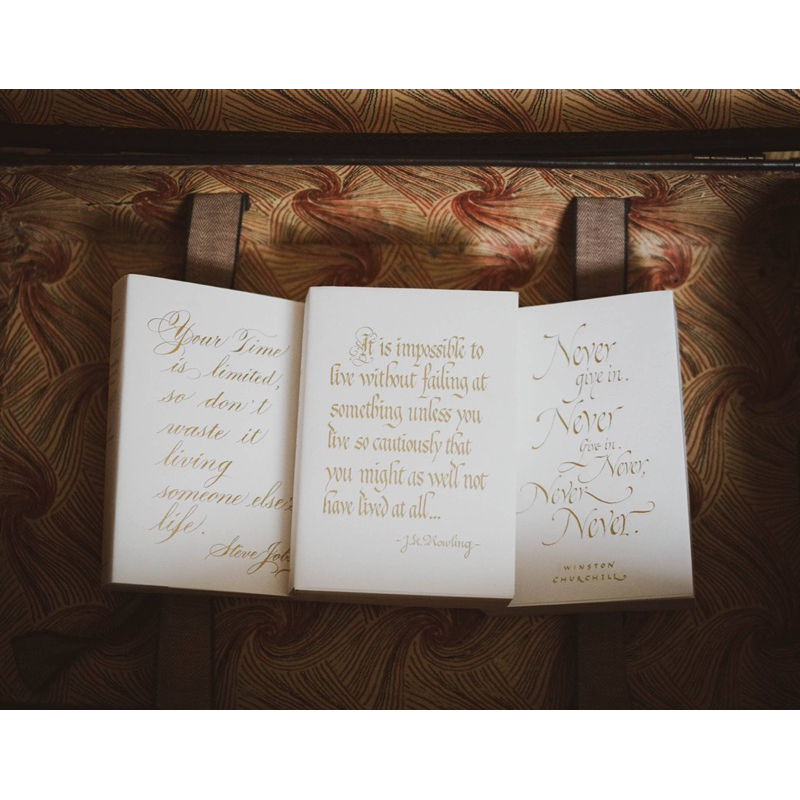 Your Time
is limited,
so don't
waste it
living
someone else's
life.
Steve Jobs
It is impossible to
live without failing at
something unless you
live so cautiously that
you might as well not
have lived at all...
-J.K. Rowling-
Never
give in.
Never
Give in.
Never,
Never
Never.
WINSTON
CHURCHILL